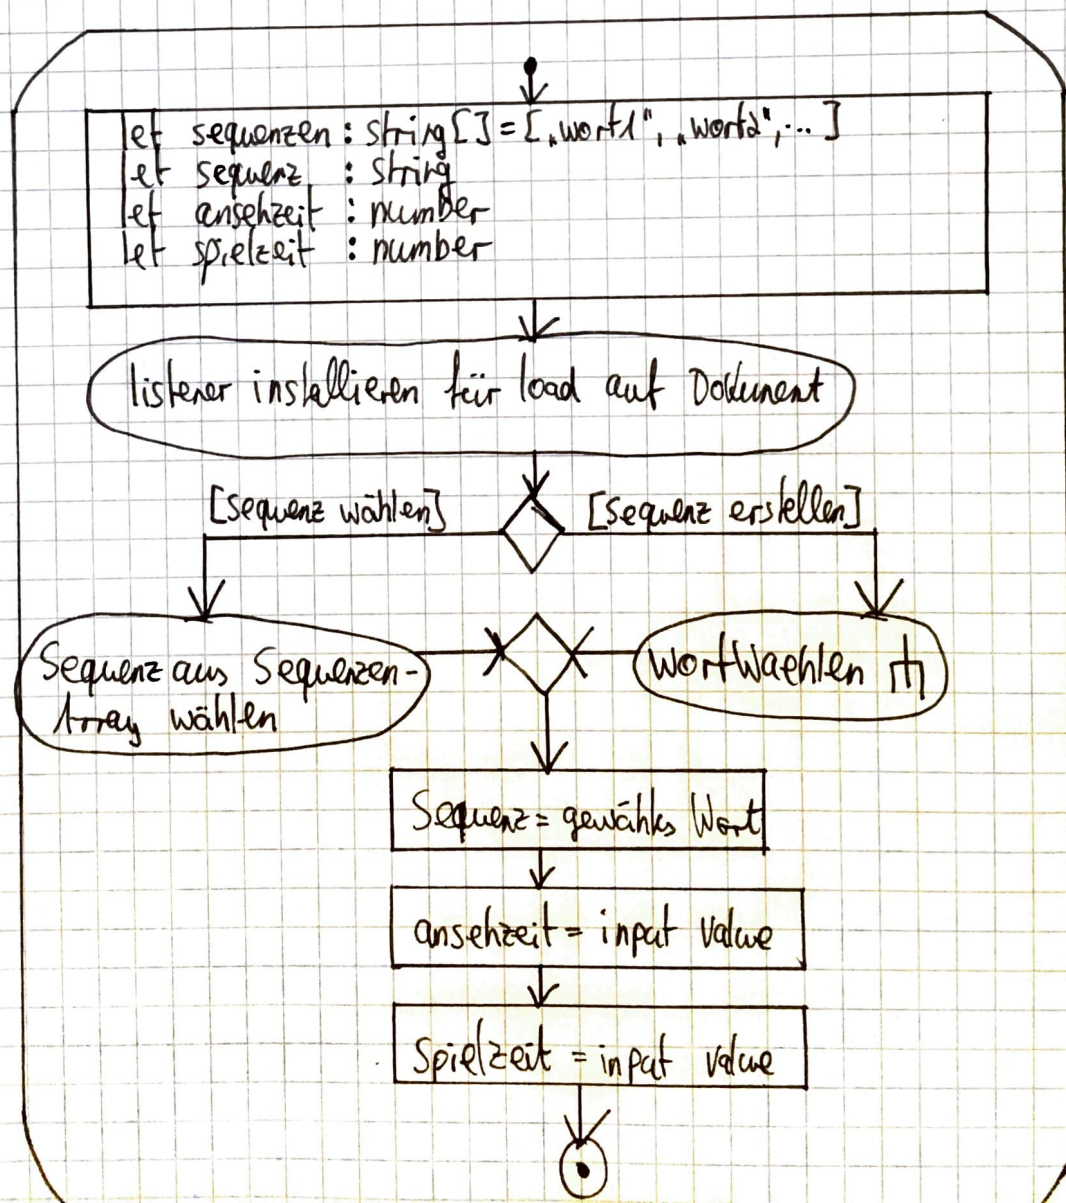 let sequenzen : string [] = [„wort1", „wort2", ... ]
let sequenz : string
let ansehzeit : number
let spielzeit : number
listener installieren für load auf Dokument
[sequenz wählen]
[sequenz erstellen]
Sequenz aus Sequenzen-
Array wählen
WortWaehlen
Sequenz = gewähltes Wort
ansehzeit = input value
Spielzeit = input value